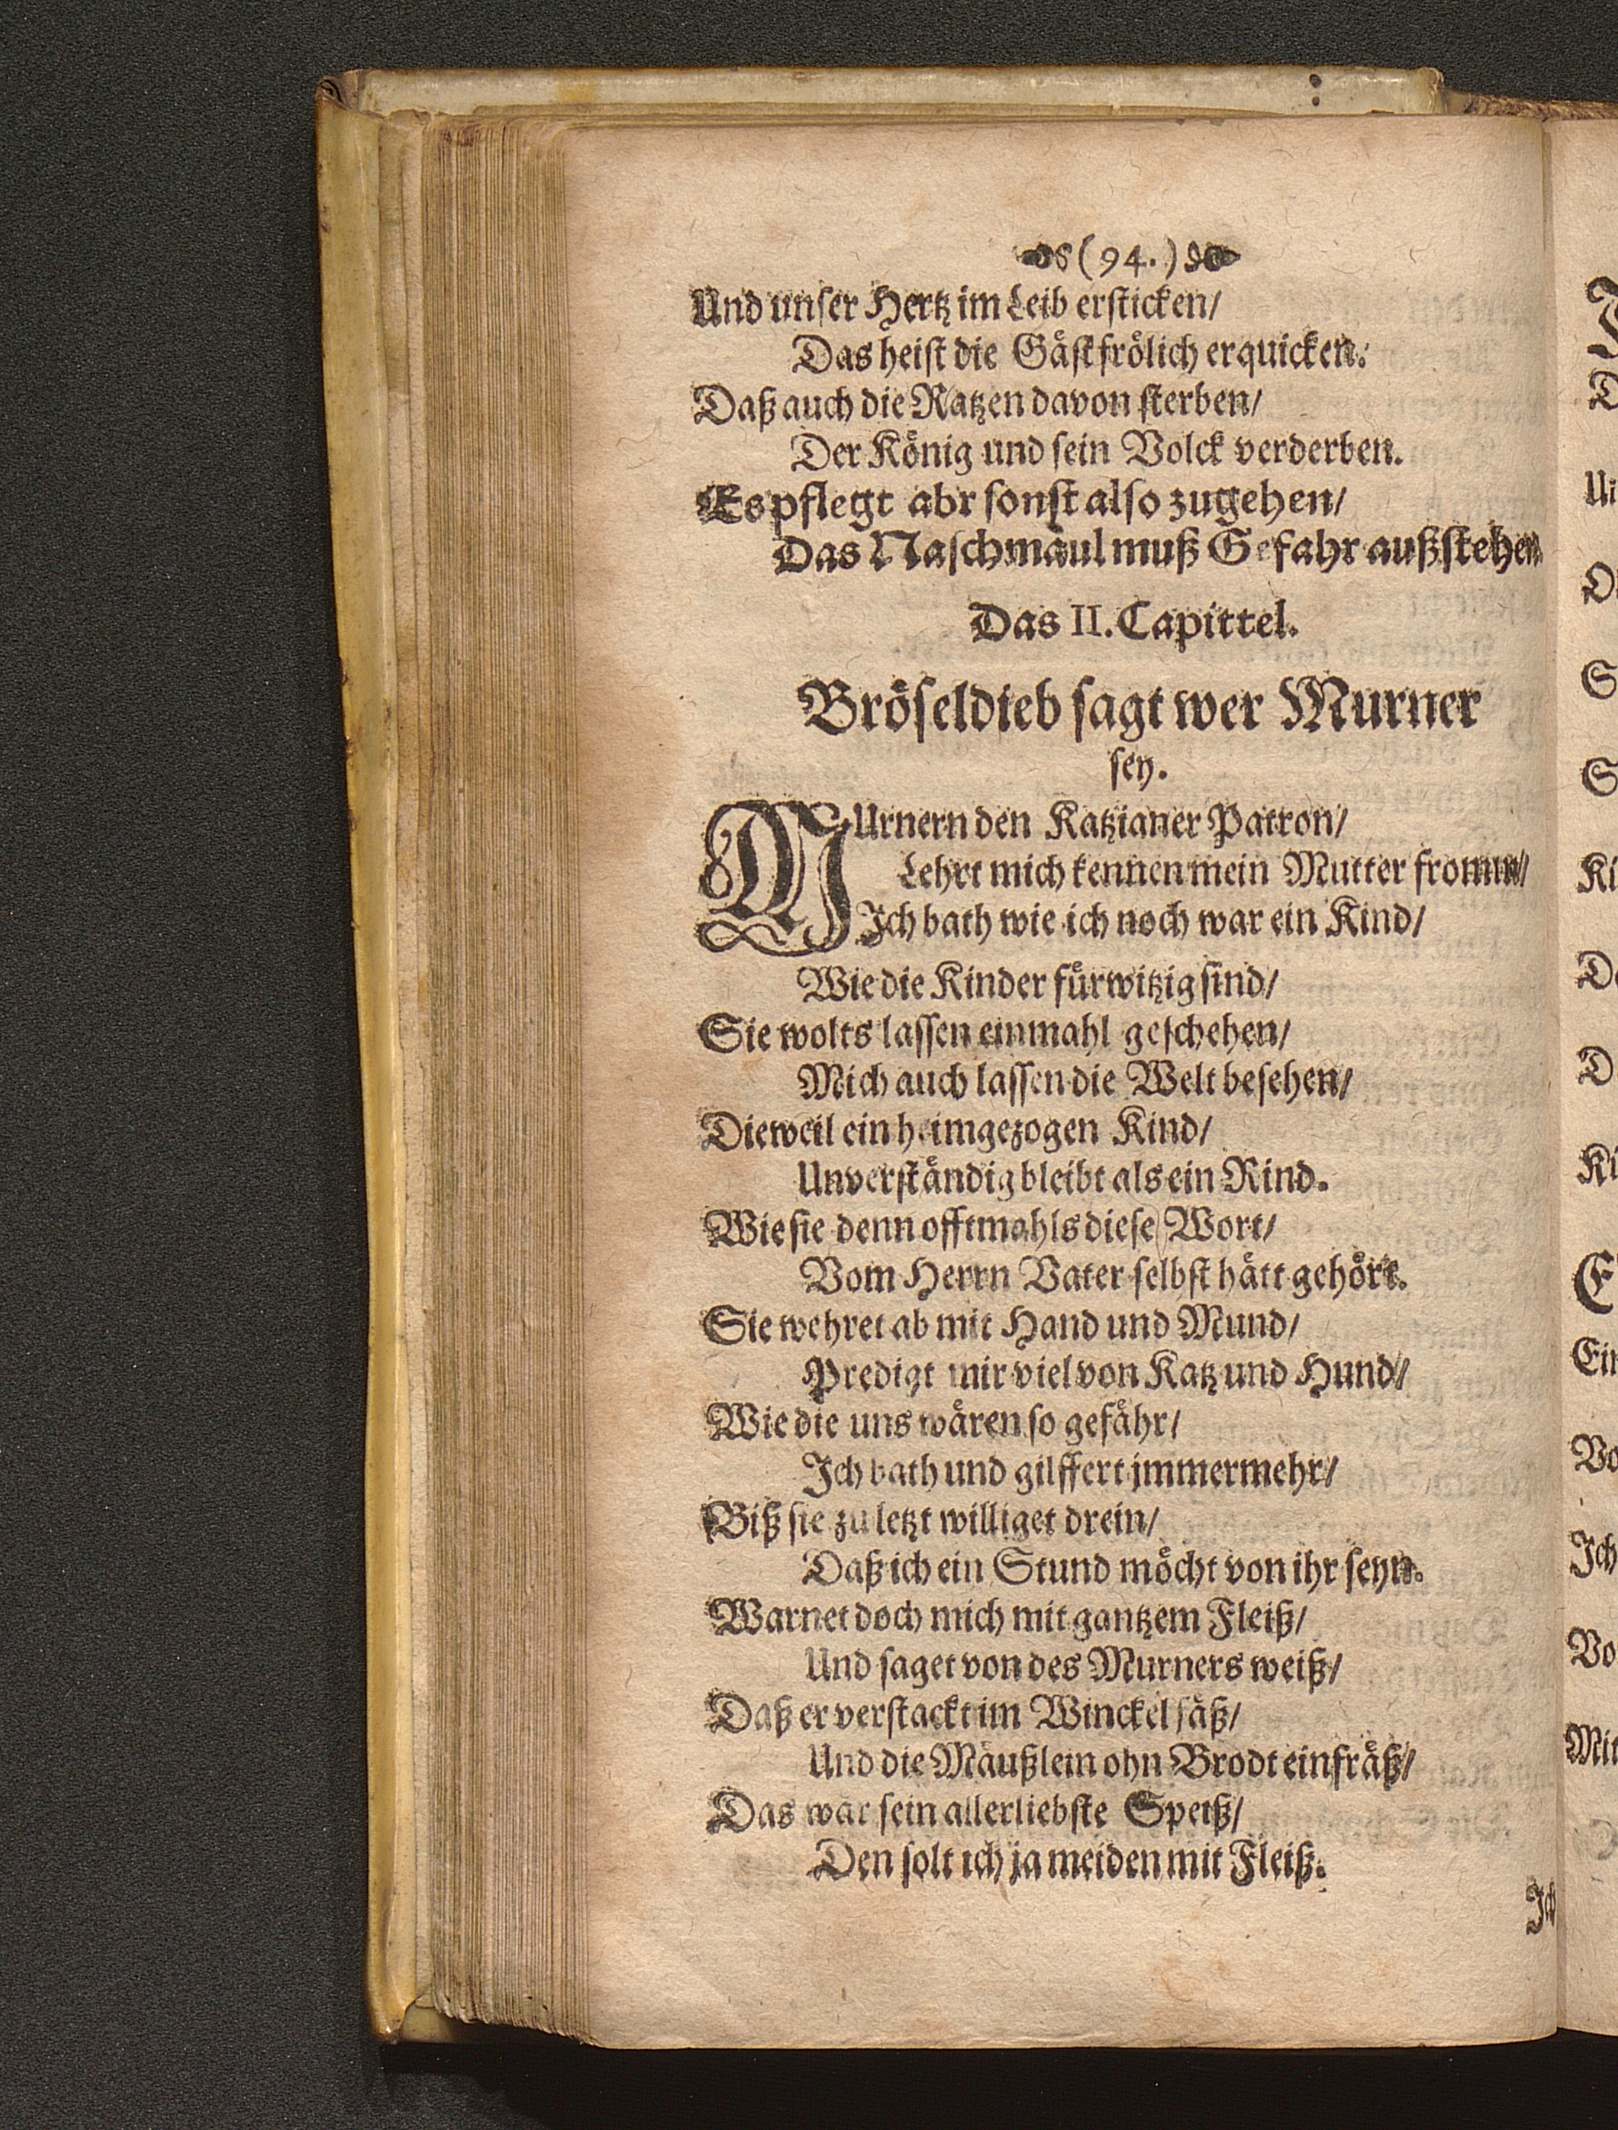 (94.)
Und unſer Hertz im Leib erſticken/
Das heiſt die Gäſt frölich erquicken.
Daß auch die Ratzen davon ſterben/
Der König und ſein Volck verderben.
Es pflegt abr ſonſt alſo zugehen/
Das Naſchmaul muß Gefahr außſtehen
Das II. Capittel.
Bröſeldieb ſagt wer Murner
ſey.
MUrnern den Katzianer Patron/
Lehrt mich kennen mein Mutter fromm/
Ich bath wie ich noch war ein Kind/
Wie die Kinder fürwitzig ſind/
Sie wolts laſſen einmahl geſchehen/
Mich auch laſſen die Welt beſehen/
Dieweil ein heimgezogen Kind/
Unverſtändig bleibt als ein Rind.
Wie ſie denn offtmahls dieſe Wort/
Vom Herrn Vater ſelbſt hätt gehört.
Sie wehret ab mit Hand und Mund/
Predigt mir viel von Katz und Hund/
Wie die uns wären ſo gefähr/
Ich bath und gilffert immermehr/
Biß ſie zu letzt williget drein/
Daß ich ein Stund möcht von ihr ſeyn.
Warnet doch mich mit gantzem Fleiß/
Und ſaget von des Murners weiß/
Daß er verſtackt im Winckel ſäß/
Und die Mäußlein ohn Brodt einfräß/
Das war ſein allerliebſte Speiß/
Den ſolt ich ja meiden mit Fleiß.
Ich